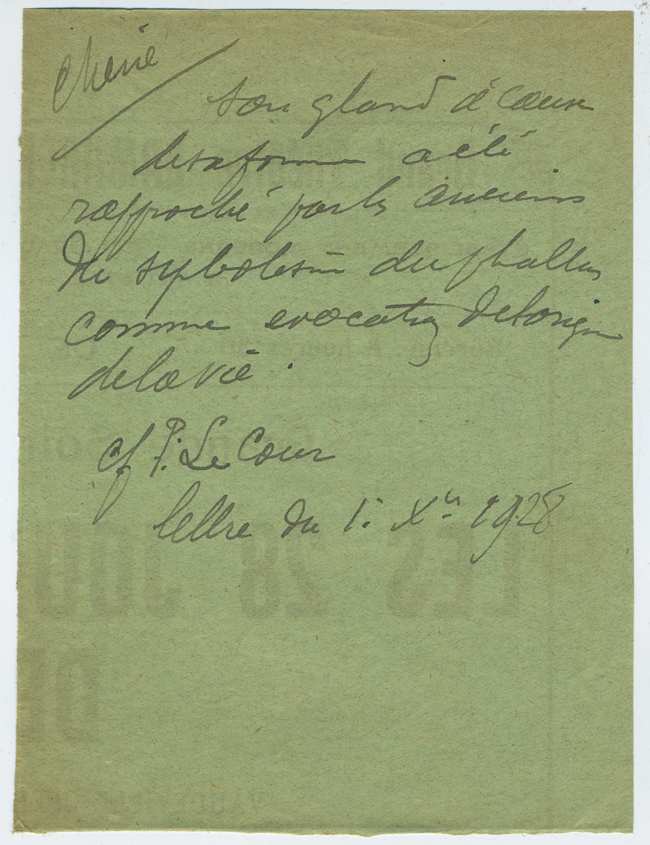 Chêne
son gland à cause
de sa forme a été
rapproché par les anciens
du symbolisme du phallus
comme evocation de l'origine
de la vie.
cf P. Le Cour
lettre du 1. Xbre 1928